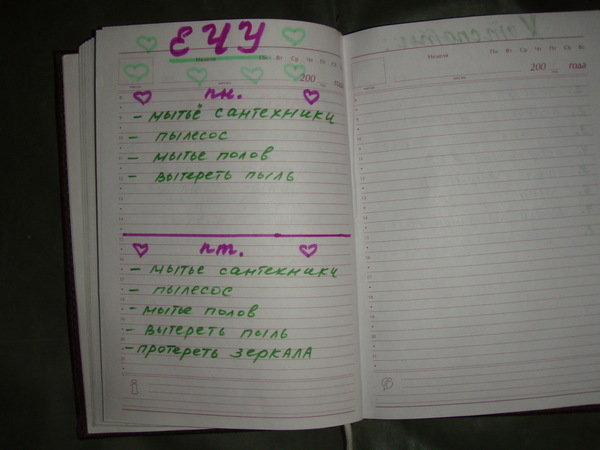 ЕЧУ
Неделя Пн Вт Ср Чт Пт Сб Вс
200 года
пн.
- мытьё сантехники
- пылесос
- мытье полов
- вытереть пыль
пт.
- мытье сантехники
- пылесос
- мытье полов
- вытереть пыль
- протереть зеркала
Неделя Пн Вт Ср Чт Пт Сб Вс
200 года